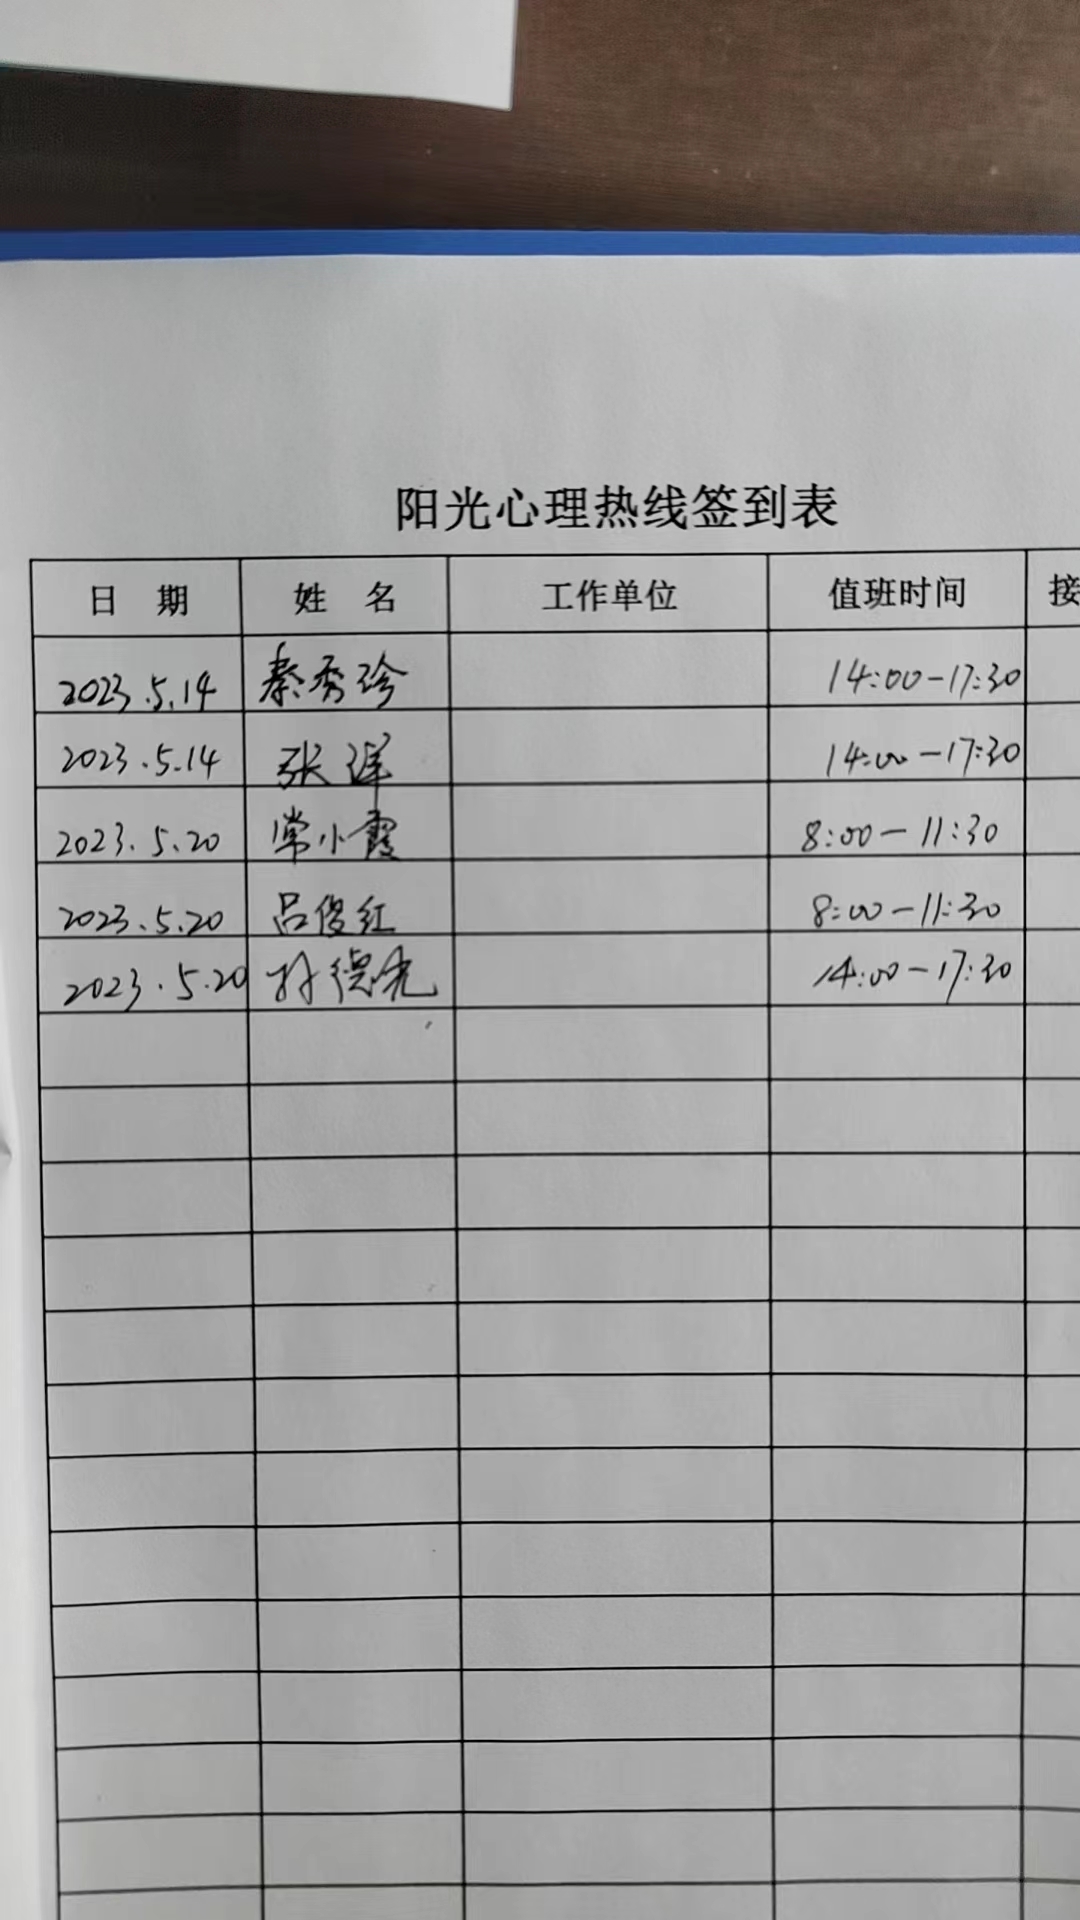 阳光心理热线签到表
日 期 姓 名 工作单位 值班时间 接
2023.5.14 秦秀珍 14:00-17:30
2023.5.14 张 14:00-17:30
2023.5.20 常小霞 8:00-11:30
2023.5.20 吕俊红 8:00-11:30
2023.5.20 德光 14:00-17:30